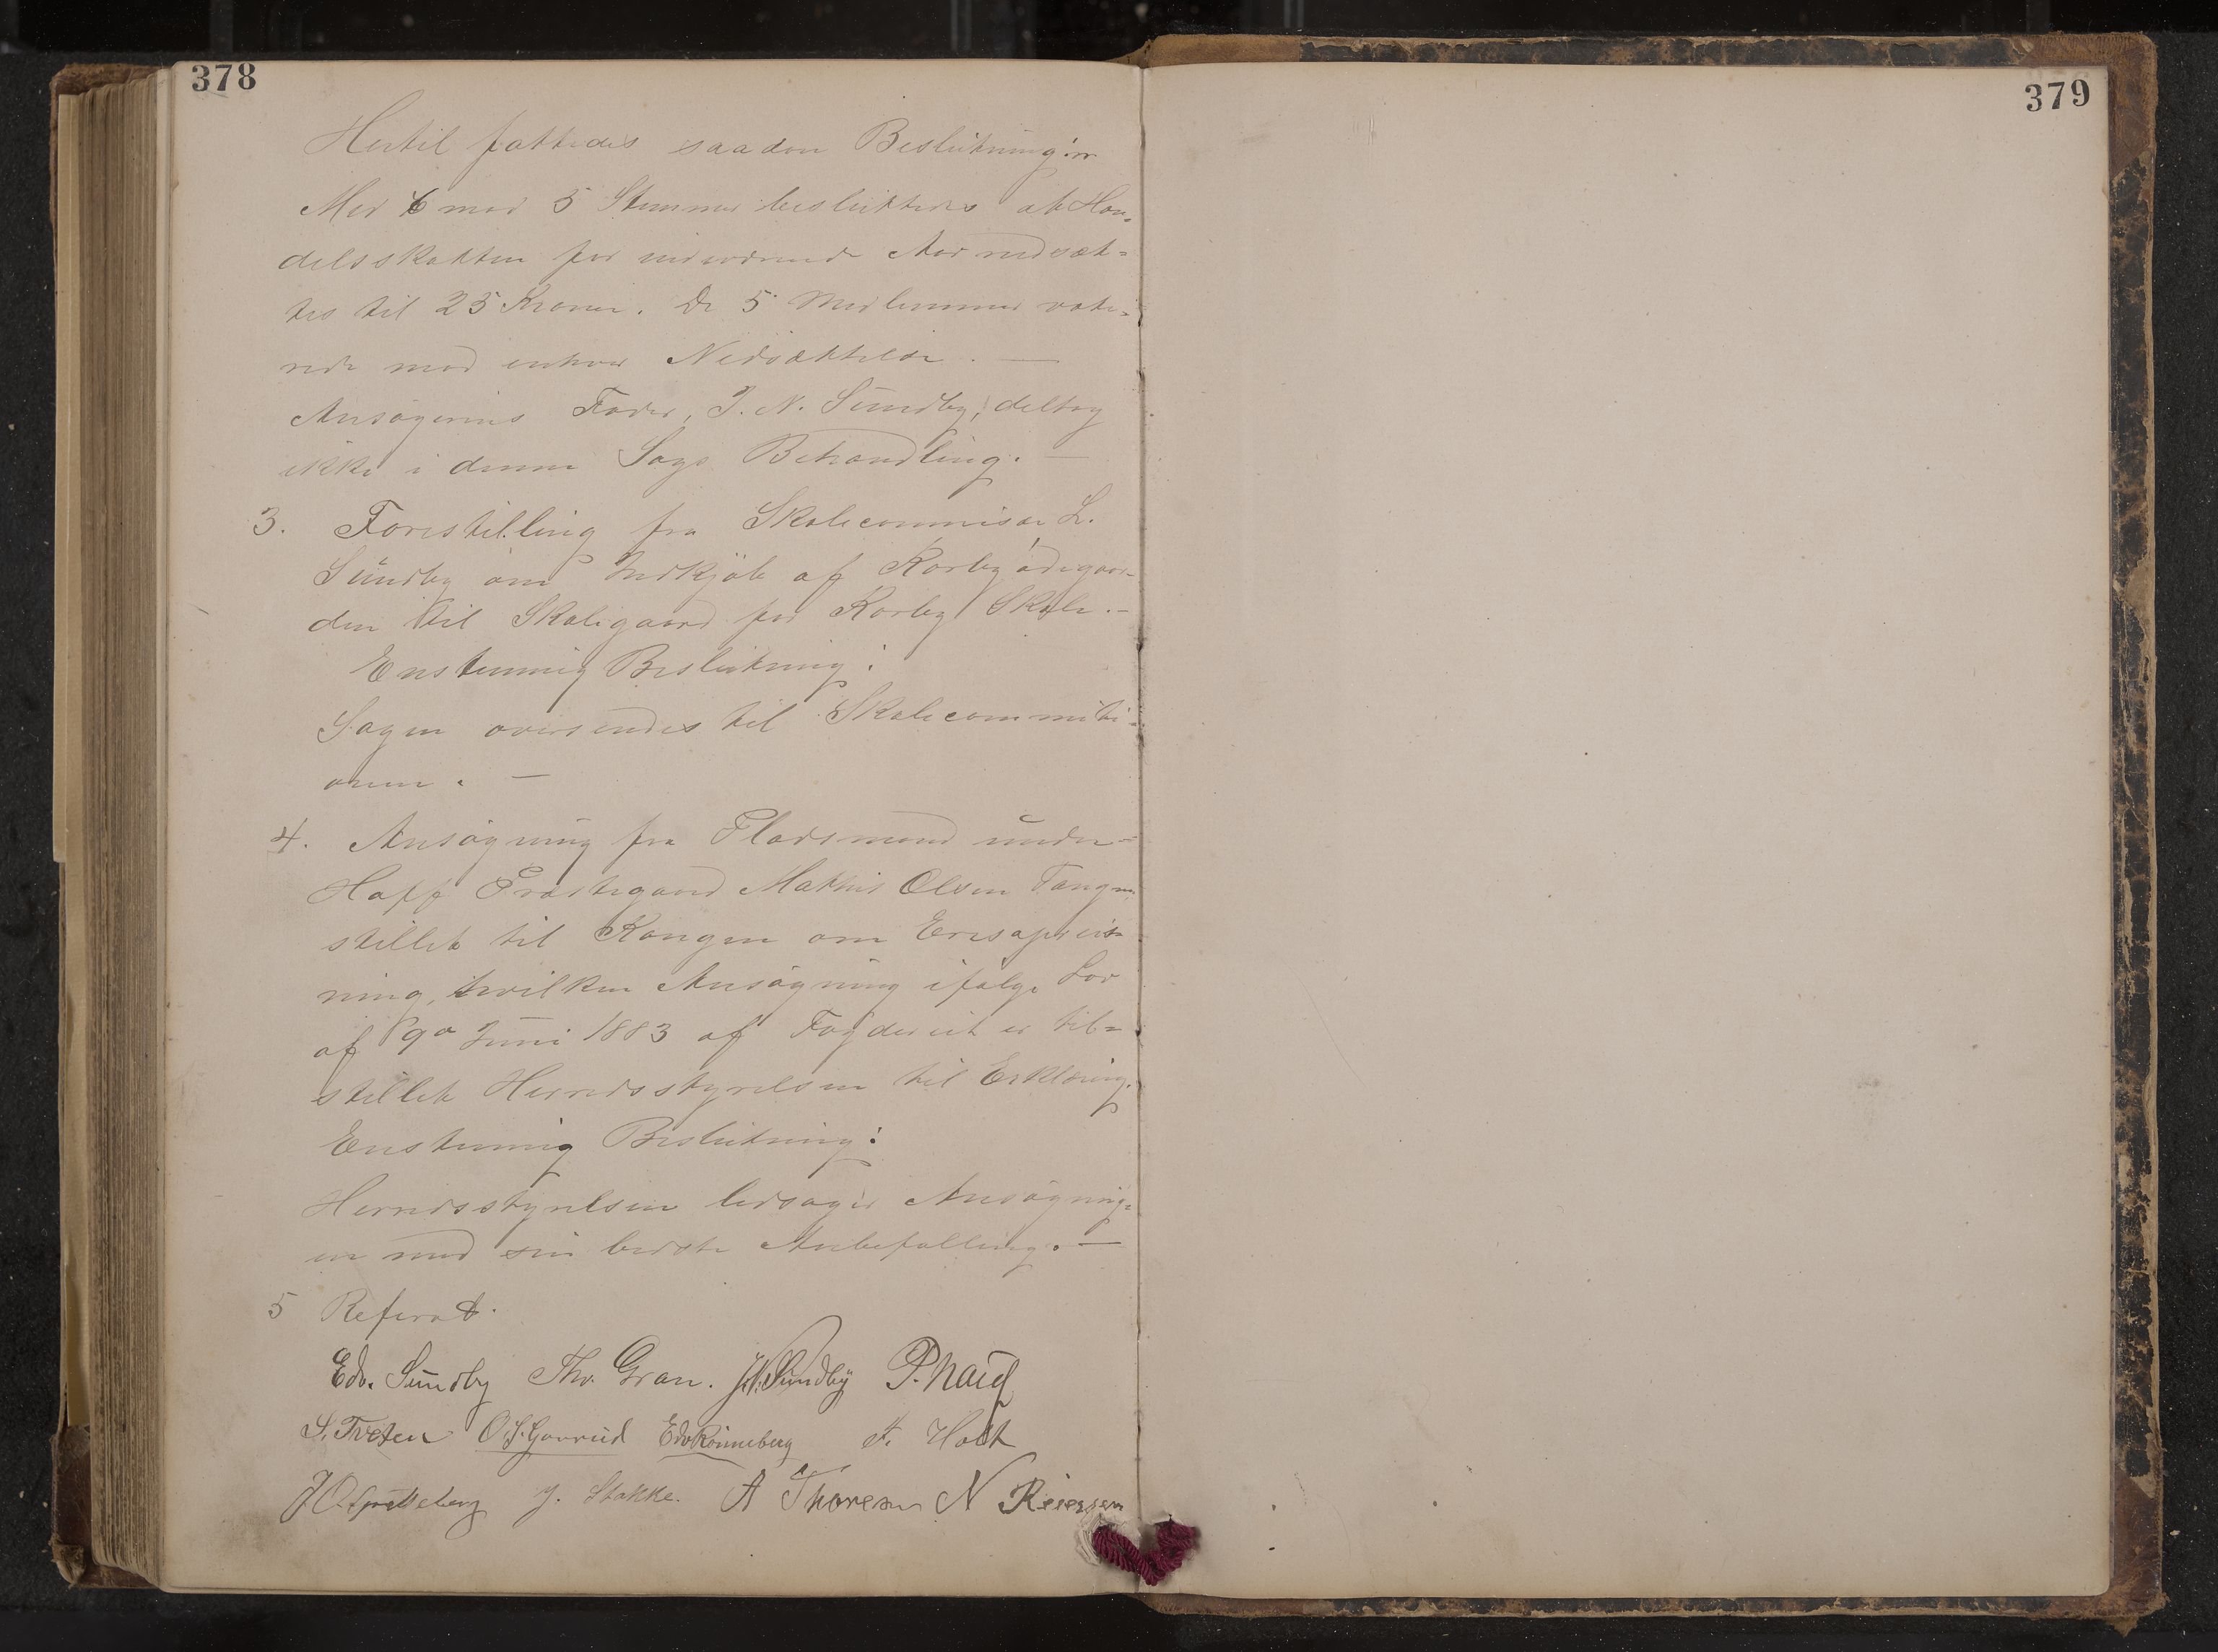 378
Hertil fattedes saadan Beslutning:
Med 6 mod 5 Stemmer besluttedes at Han-
delsskatten for indeværende Aar nedsæt-
tes til 25 Kroner. De 5 Medlemmer vote-
rede mod enhver Nedsættelse. —
Ansøgerens Fader, J. N. Sundby, deltog
ikke i denne Sags Behandling. —
3. Forestilling fra Skolecommisær L.
Sundby om Indkjøb af Korbyødegaar-
den til Skolegaard for Korby Skole. —
Enstemmig Beslutning:
Sagen oversendes til Skolecommisi-
onen. —
4. Ansøgning fra Pladsmand under
Hoff Præstegaard Mathis Olsen Tangen
stillet til Kongen om Eresopreis-
ning, hvilken Ansøgning ifølge Lov
af 9de Juni 1883 af Fogderiet er til-
stillet Herredsstyrelsen til Erklæring.
Enstemmig Beslutning:
Herredsstyrelsen ledsager Ansøgning-
en med sin bedste Anbefalling. —
5 Referat.
Edv. Sundby Thv. Gran. J.N. Sundby P. Haug
S. Tveten O. S. Gaarud Edv Rønneberg F. Holt
J. Stokke. A Thoresen N Reiersen
379